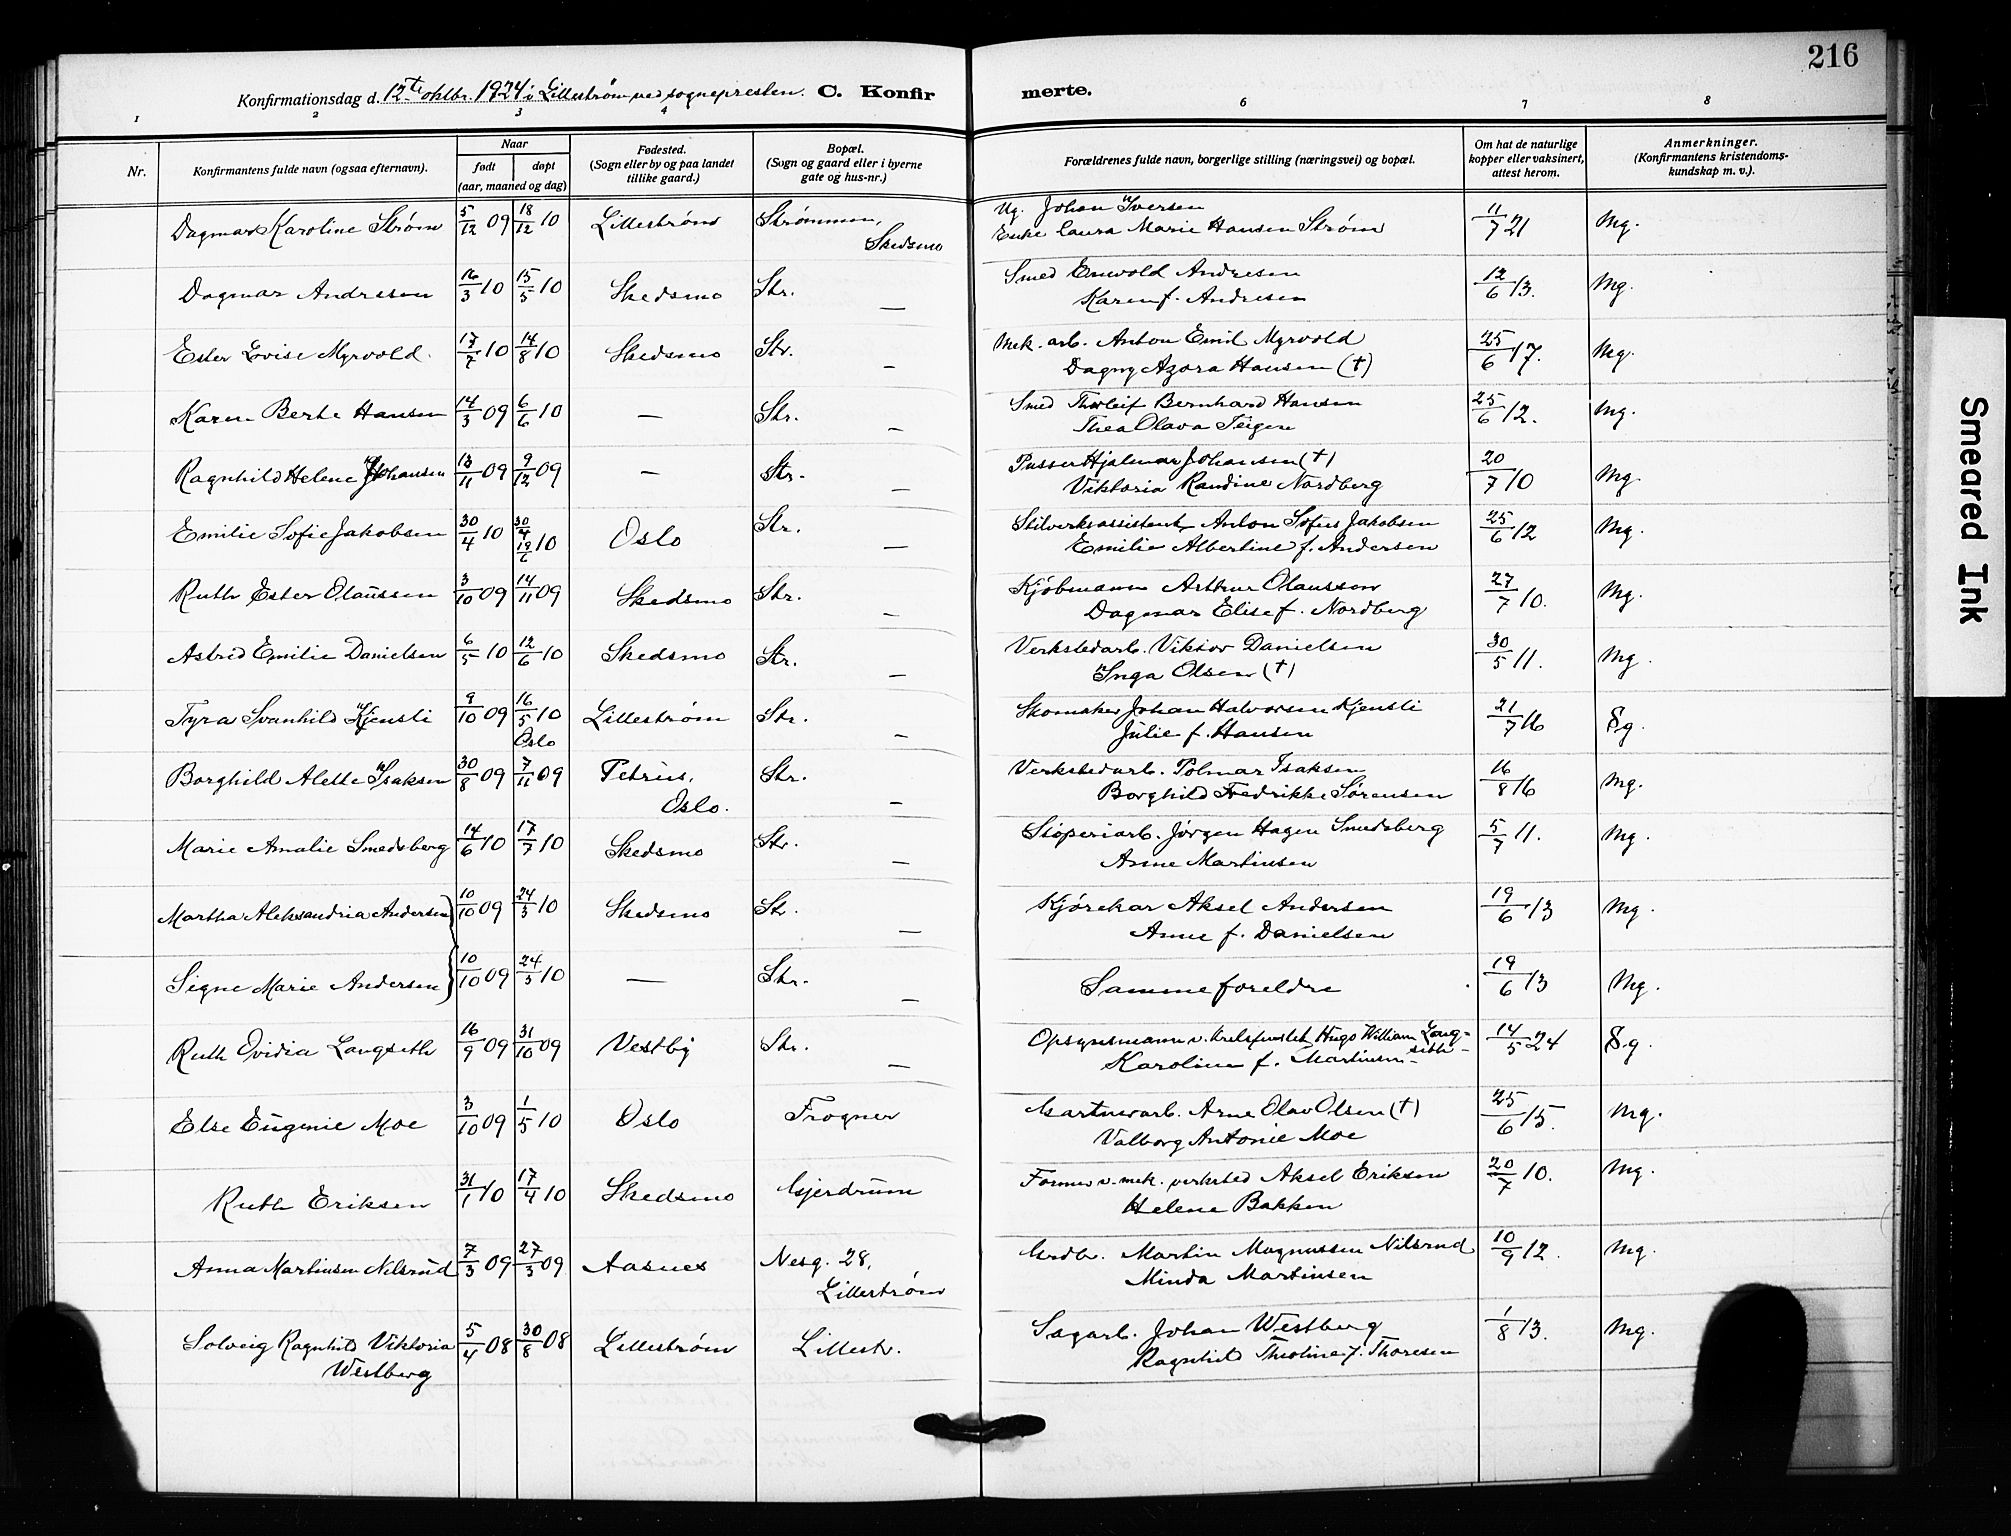 216
Konfirmationsdag d. 12te oktbr. 1924 i Lillestrøm ved sognepresten. C. Konfir merte.
1 2 3 4 6 7 8
Nr. Konfirmantens fulde navn (ogsaa efternavn). Naar født døpt (aar, maaned og dag) Fødested. (Sogn eller by og paa landet tillike gaard.) Bopæl. (Sogn og gaard eller i byerne gate og hus-nr.) Forældrenes fulde navn, borgerlige stilling (næringsvei) og bopæl. Om hat de naturlige kopper eller vaksinert, attest herom. Anmerkninger. (Konfirmantens kristendoms-kundskap m. v.).
Dagmar Karoline Strøm 5/12 09 18/12 10 Lillestrøm Strømmen, Skedsmo Ug. Johan Iversen 11/7 21 Mg.
Enke Laura Marie Hansen Strøm
Dagmar Andresen 16/3 10 15/5 10 Skedsmo Str. — Smed Enevold Andresen 12/6 13. Mg.
Karen f. Andresen
Ester Lovise Myrvold. 17/7 10 14/8 10 Skedsmo Str. — Mek. arb. Anton Emil Myrvold 25/6 17. Mg.
Dagny Azora Hansen (†)
Karen Berte Hansen 14/3 09 6/6 10 — Str. — Smed Thorleif Bernhard Hansen 25/6 12. Mg.
Thea Olava Teigen
Ragnhild Helene Johansen 13/11 09 9/12 09 — Str. — Pusser Hjalmar Johansen (†) 20/7 10 Mg.
Viktoria Randine Nordberg
Emilie Sofie Jakobsen 30/4 10 10 Oslo Str. — Stilverksassistent Anton Sofus Jakobsen 25/6 12 Mg.
Emilie Albertine f. Andersen
Ruth Ester Olaussen 3/10 09 14/11 09 Skedsmo Str. — Kjøbmann Arthur Olausson 27/7 10. Mg.
Dagmar Elise f. Nordberg
Astrid Emilie Danielsen 6/5 10 12/6 10 Skedsmo Str. — Verkstedarb. Viktor Danielsen 30/5 11. Mg.
Inga Olsen (†)
Tyra Svanhild Kjensli 9/10 09 16/5 10 Oslo Lillestrøm Str. — Skomaker Johan Halvorsen Kjensli 21/7 16 S.g.
Julie f. Hansen
Borghild Alette Isaksen 30/8 09 7/11 09 Petrus, Oslo. Str. — Verkstedarb. Polmar Isaksen 16/8 16 Mg.
Borghild Fredrikke Sørensen
Marie Amalie Smedsberg 14/6 10 17/7 10 Skedsmo Str. — Støperiarb. Jørgen Hagen Smedsberg 5/7 11. Mg.
Anne Martinsen
Martha Aleksandria Andersen 10/10 09 24/3 10 Skedsmo Str. — Kjørekar Aksel Andersen 19/6 13 Mg.
Anne f. Danielsen
Signe Marie Andersen 10/10 09 24/3 10 — Str. — Samme foreldre 19/6 13 Mg.
Ruth Ovidia Langseth 16/9 09 31/10 09 Vestby Str. — Opsynsmann v. Hugo William Langseth 14/5 24 S.g.
Karoline f. Martinsen
Else Eugenie Moe 3/10 09 1/5 10 Oslo Frogner Gartnerarb. Arne Olav Olsen (†) 25/6 15. Mg.
Valborg Antonie Moe
Ruth Eriksen 31/1 10 17/4 10 Skedsmo Gjerdrum Former v. mek. verksted Aksel Eriksen 20/7 10. Mg.
Helene Bakken
Anna Martinsen Nilsrud 7/3 09 27/3 09 Aasnes Nesg. 28, Lillestrøm Grdbr. Martin Magnussen Nilsrud 10/9 12. Mg.
Minda Martinsen
Solveig Ragnhild Viktoria Westberg 5/4 08 30/8 08 Lillestrøm Lillestr. Sagarb. Johan Westberg 1/8 13. Mg.
Ragnhild Theoline f. Thoresen
Smeared Ink